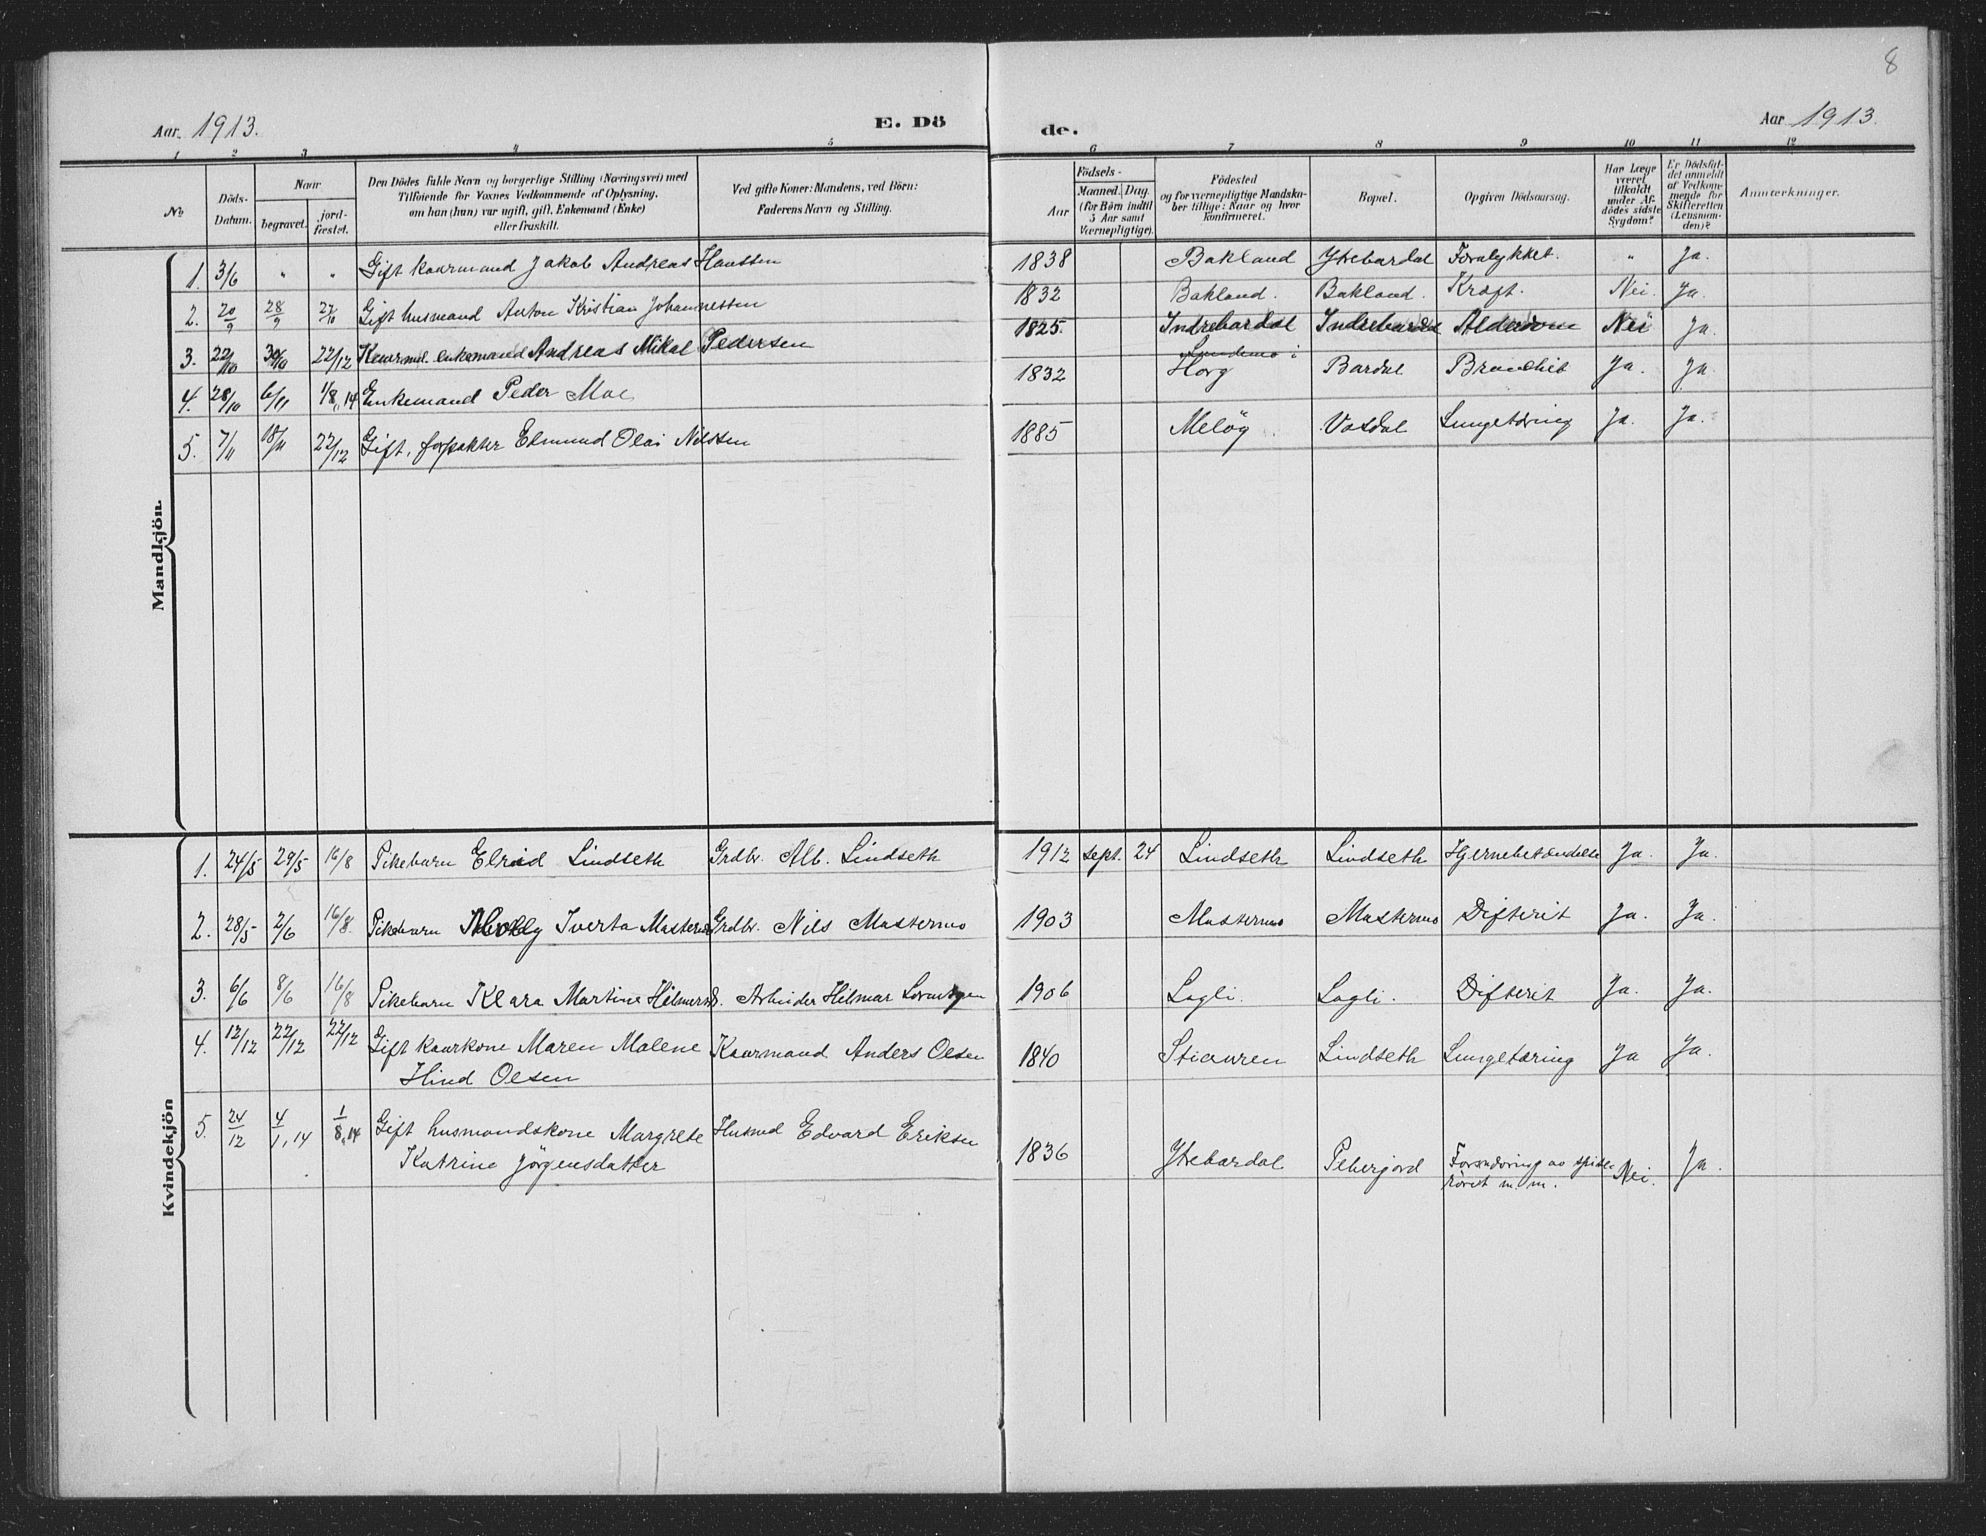 8
Aar 1913. E. Dö de. Aar 1913.
1 2 3 4 5 6 7 8 9 10 11 12
No. Döds-Datum. Naar begravet. jord-fæstet. Den Dödes fulde Navn og borgerlige Stilling (Næringsvei) med Tilföiende for Voxnes Vedkommende af Oplysning, om han (hun) var ugift, gift, Enkemand (Enke) eller fraskilt. Ved gifte Koner: Mandens, ved Börn: Faderens Navn og Stilling. Födsels- Aar Maaned. Dag. (for Börn indtil 5 Aar samt Værnepligtige). Födested og for værnepligtige Mandskaber tillige: Naar og hvor konfirmeret. Bopæl. Opgiven Dödsaarsag. Har Læge været tilkaldt under Afdödes sidste Sygdom? Er Dödsfaldet anmeldt af Vedkommende for Skifteretten (Lensmanden)? Anmærkninger.
Mandkjön.
1. 3/6 " " Gift kaarmand Jakob Andreas Hanssen 1838 Bakland Ytrebardal Forulykket. " Ja.
2. 20/9 28/9 27/10 Gift husmand Anton Kristian Johannessen 1832 Bakland. Bakland. Kræft. Nei. Ja.
3. 22/10 30/10 22/12 Kaarmd. enkemand Andreas Mikal Pedersen 1825. Indrebardal Indrebardal Alderdom Nei Ja.
4. 28/10 6/11 1/8, 14 Enkemand Peder Moe 1832 i Horg Bardal Bronchit Ja. Ja.
5. 7/11 18/11 22/12 Gift, forpakter Edmund Olai Nilssen 1885 Meløy. Vasdal Lungetæring Ja. Ja.
Kvindekjön
1. 24/5 29/5 16/8 Pikebarn Elrid Lindseth Grdbr. Alb. Lindseth 1912 sept. 24 Lindseth Lindseth Hjernebetændelse Ja. Ja.
2. 28/5 2/6 16/8. Pikebarn Iverta Mastermo Grdbr. Nils Mastermo 1903 Mastermo Mastermo Difterit Ja. Ja.
3. 6/6 8/6 16/8 Pikebarn Klara Martine Hilmarsd. Arbeider Hilmar Lorentsen 1906 Lagli. Lagli. Difterit Ja. Ja.
4. 12/12 22/12 22/12 Gift kaarkone Maren Malene Kaarmand Anders Olsen 1840 Stiauren Lindseth Lungetæring Ja Ja.
Hind Olsen
5. 24/12 4/1, 14 1/8, 14 Gift husmandskone Margrete Husmd Edvard Eriksen 1836 Ytrebardal Peberjord Forsnevring av spise- Nei. Ja.
Katrine Jørgensdatter røret m. m.